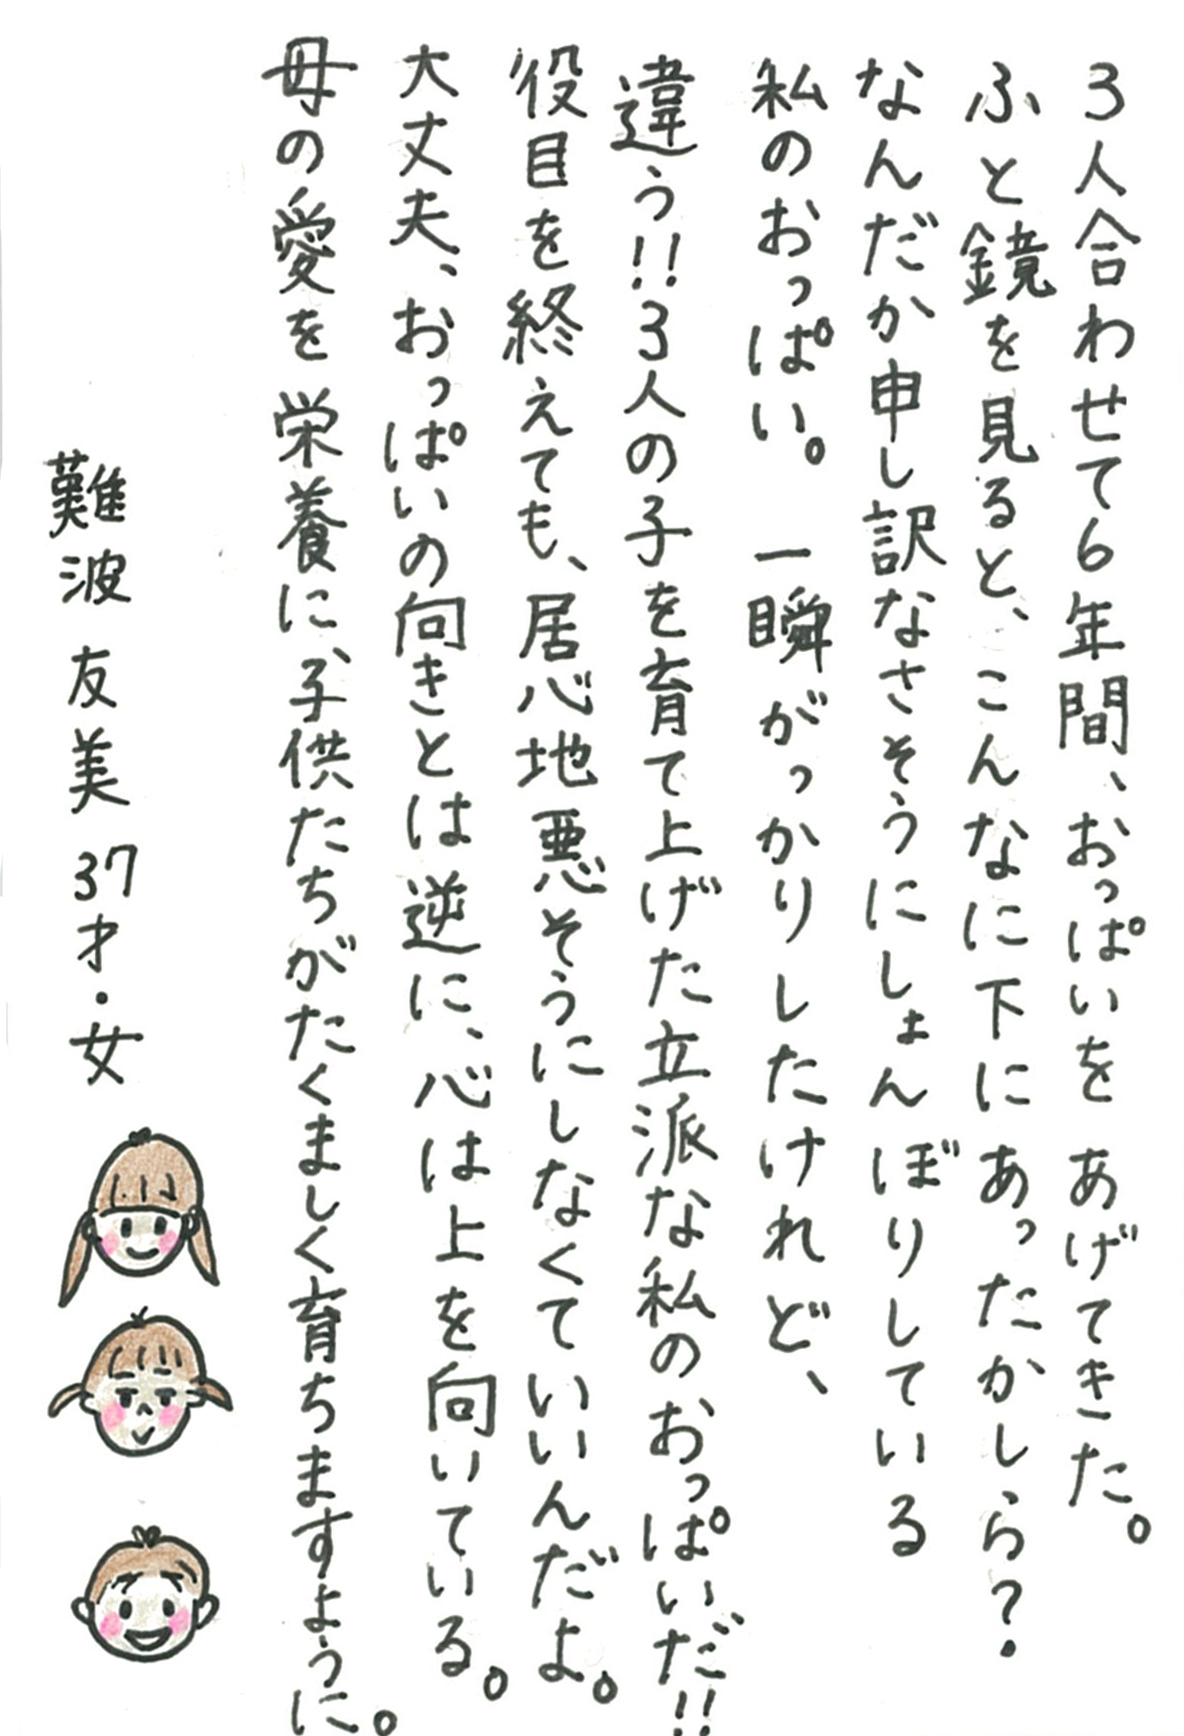 3人合わせて6年間、おっぱいをあげてきた。
ふと鏡を見ると、こんなに下にあったかしら?
なんだか申し訳なさそうにしょんぼりしている
私のおっぱい。一瞬がっかりしたけれど、
違う!!3人の子を育て上げた立派な私のおっぱいだ!!
役目を終えても、居心地悪そうにしなくていいんだよ。
大丈夫、おっぱいの向きとは逆に、心は上を向いている。
母の愛を栄養に、子供たちがたくましく育ちますように。
難波友美 37才・女